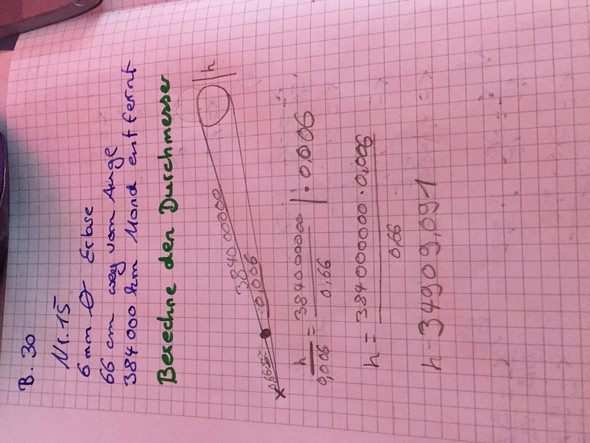 B. 30
Nr. 15
6 mm Ø Erbse
66 cm weg vom Auge
384 000 km Mond entfernt
Berechne den Durchmesser
38400000
0,006
h
h/0,006 = 38400000/0,66 | · 0,006
h = 384000000 · 0,006 / 0,66
h 34909,091